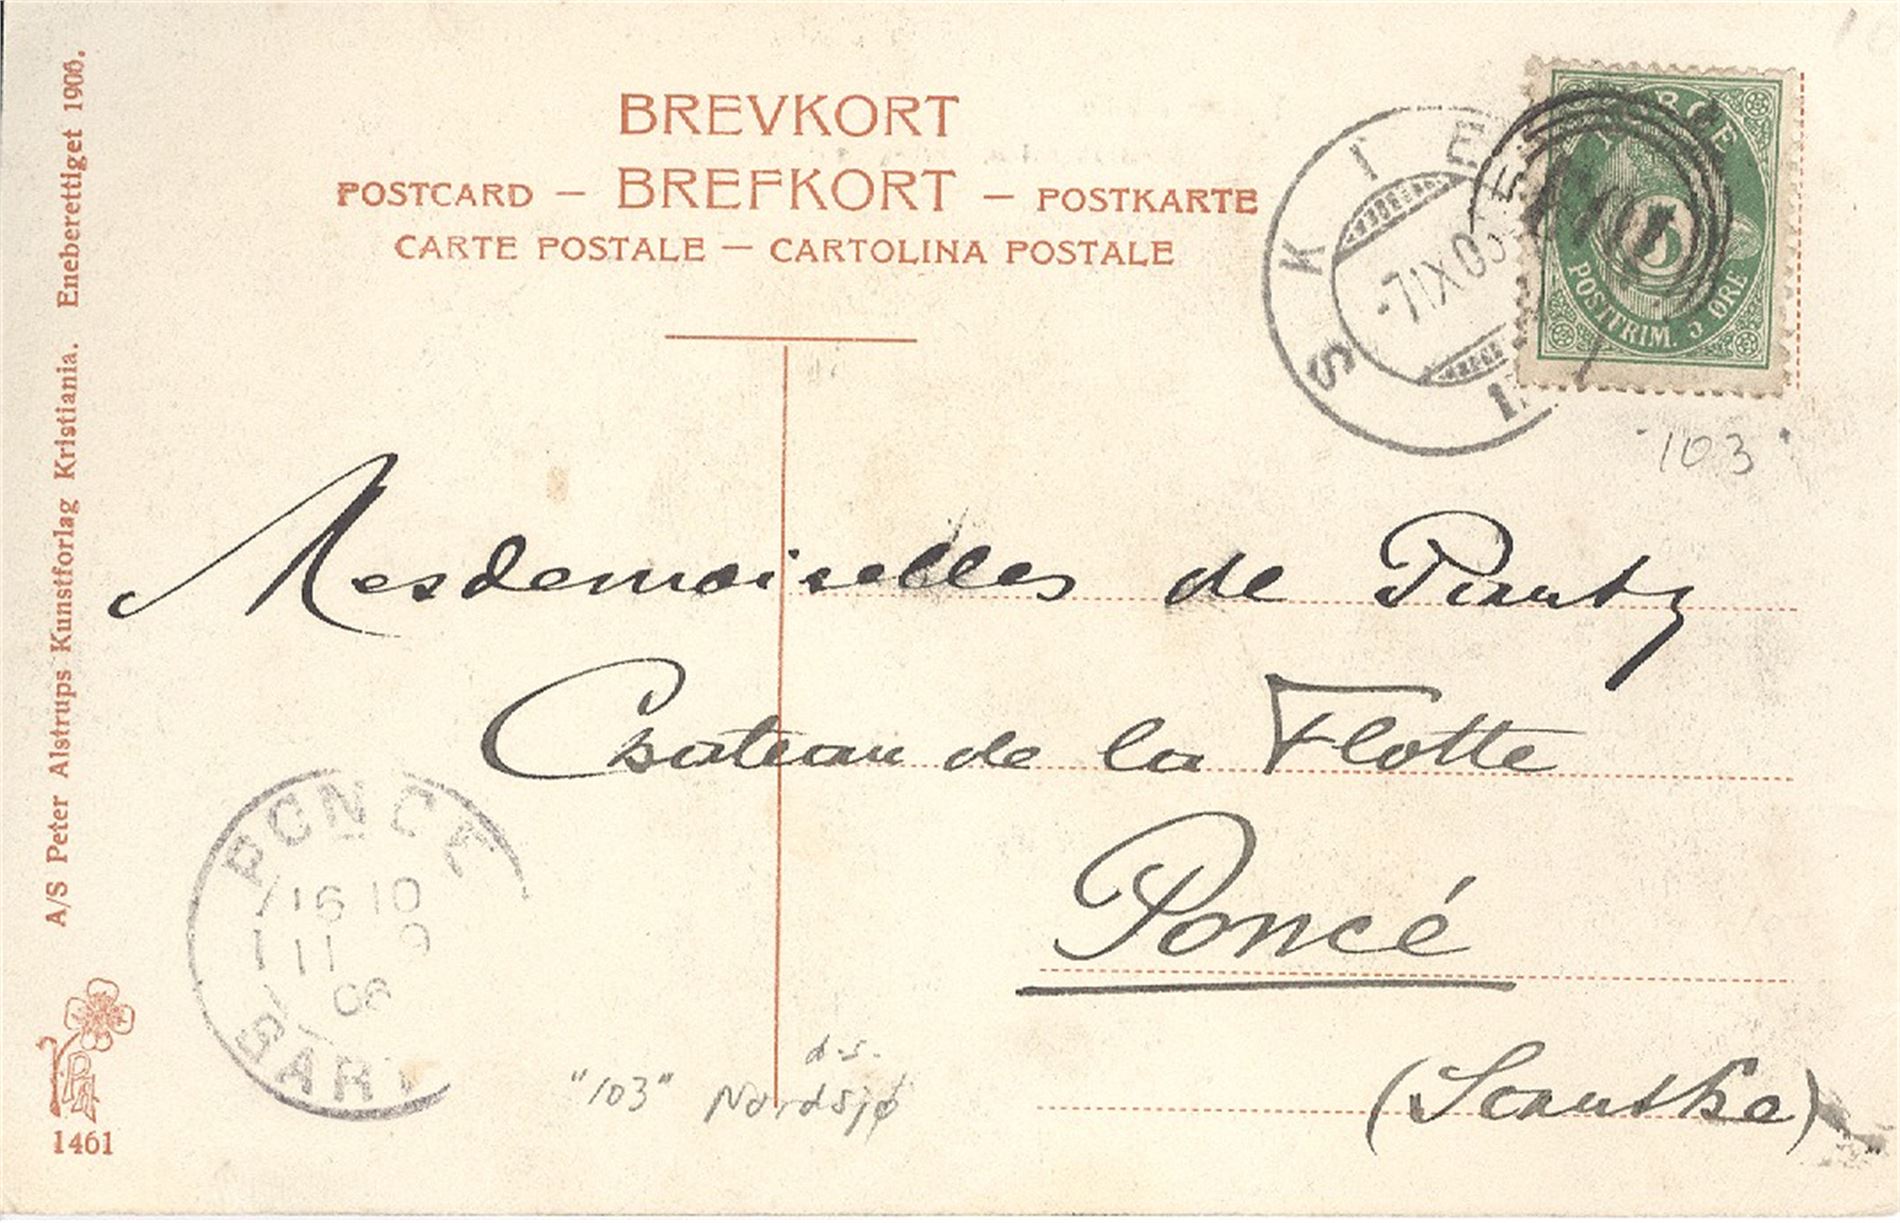 BREVKORT
POSTCARD — BREFKORT — POSTKARTE
CARTE POSTALE — CARTOLINA POSTALE
A/S Peter Alstrups Kunstforlag Kristiania. Eneberettiget 1906.
1461
SKIEN
-7 IX 06
NORGE
5
POSTFRIM. 5 ØRE
103
Mesdemoiselles de
Chateau de la Flotte
Poncé
(Sarthe)
PONCÉ
16 10
11 9
06
SART
d-s-
"103" Nordsjø